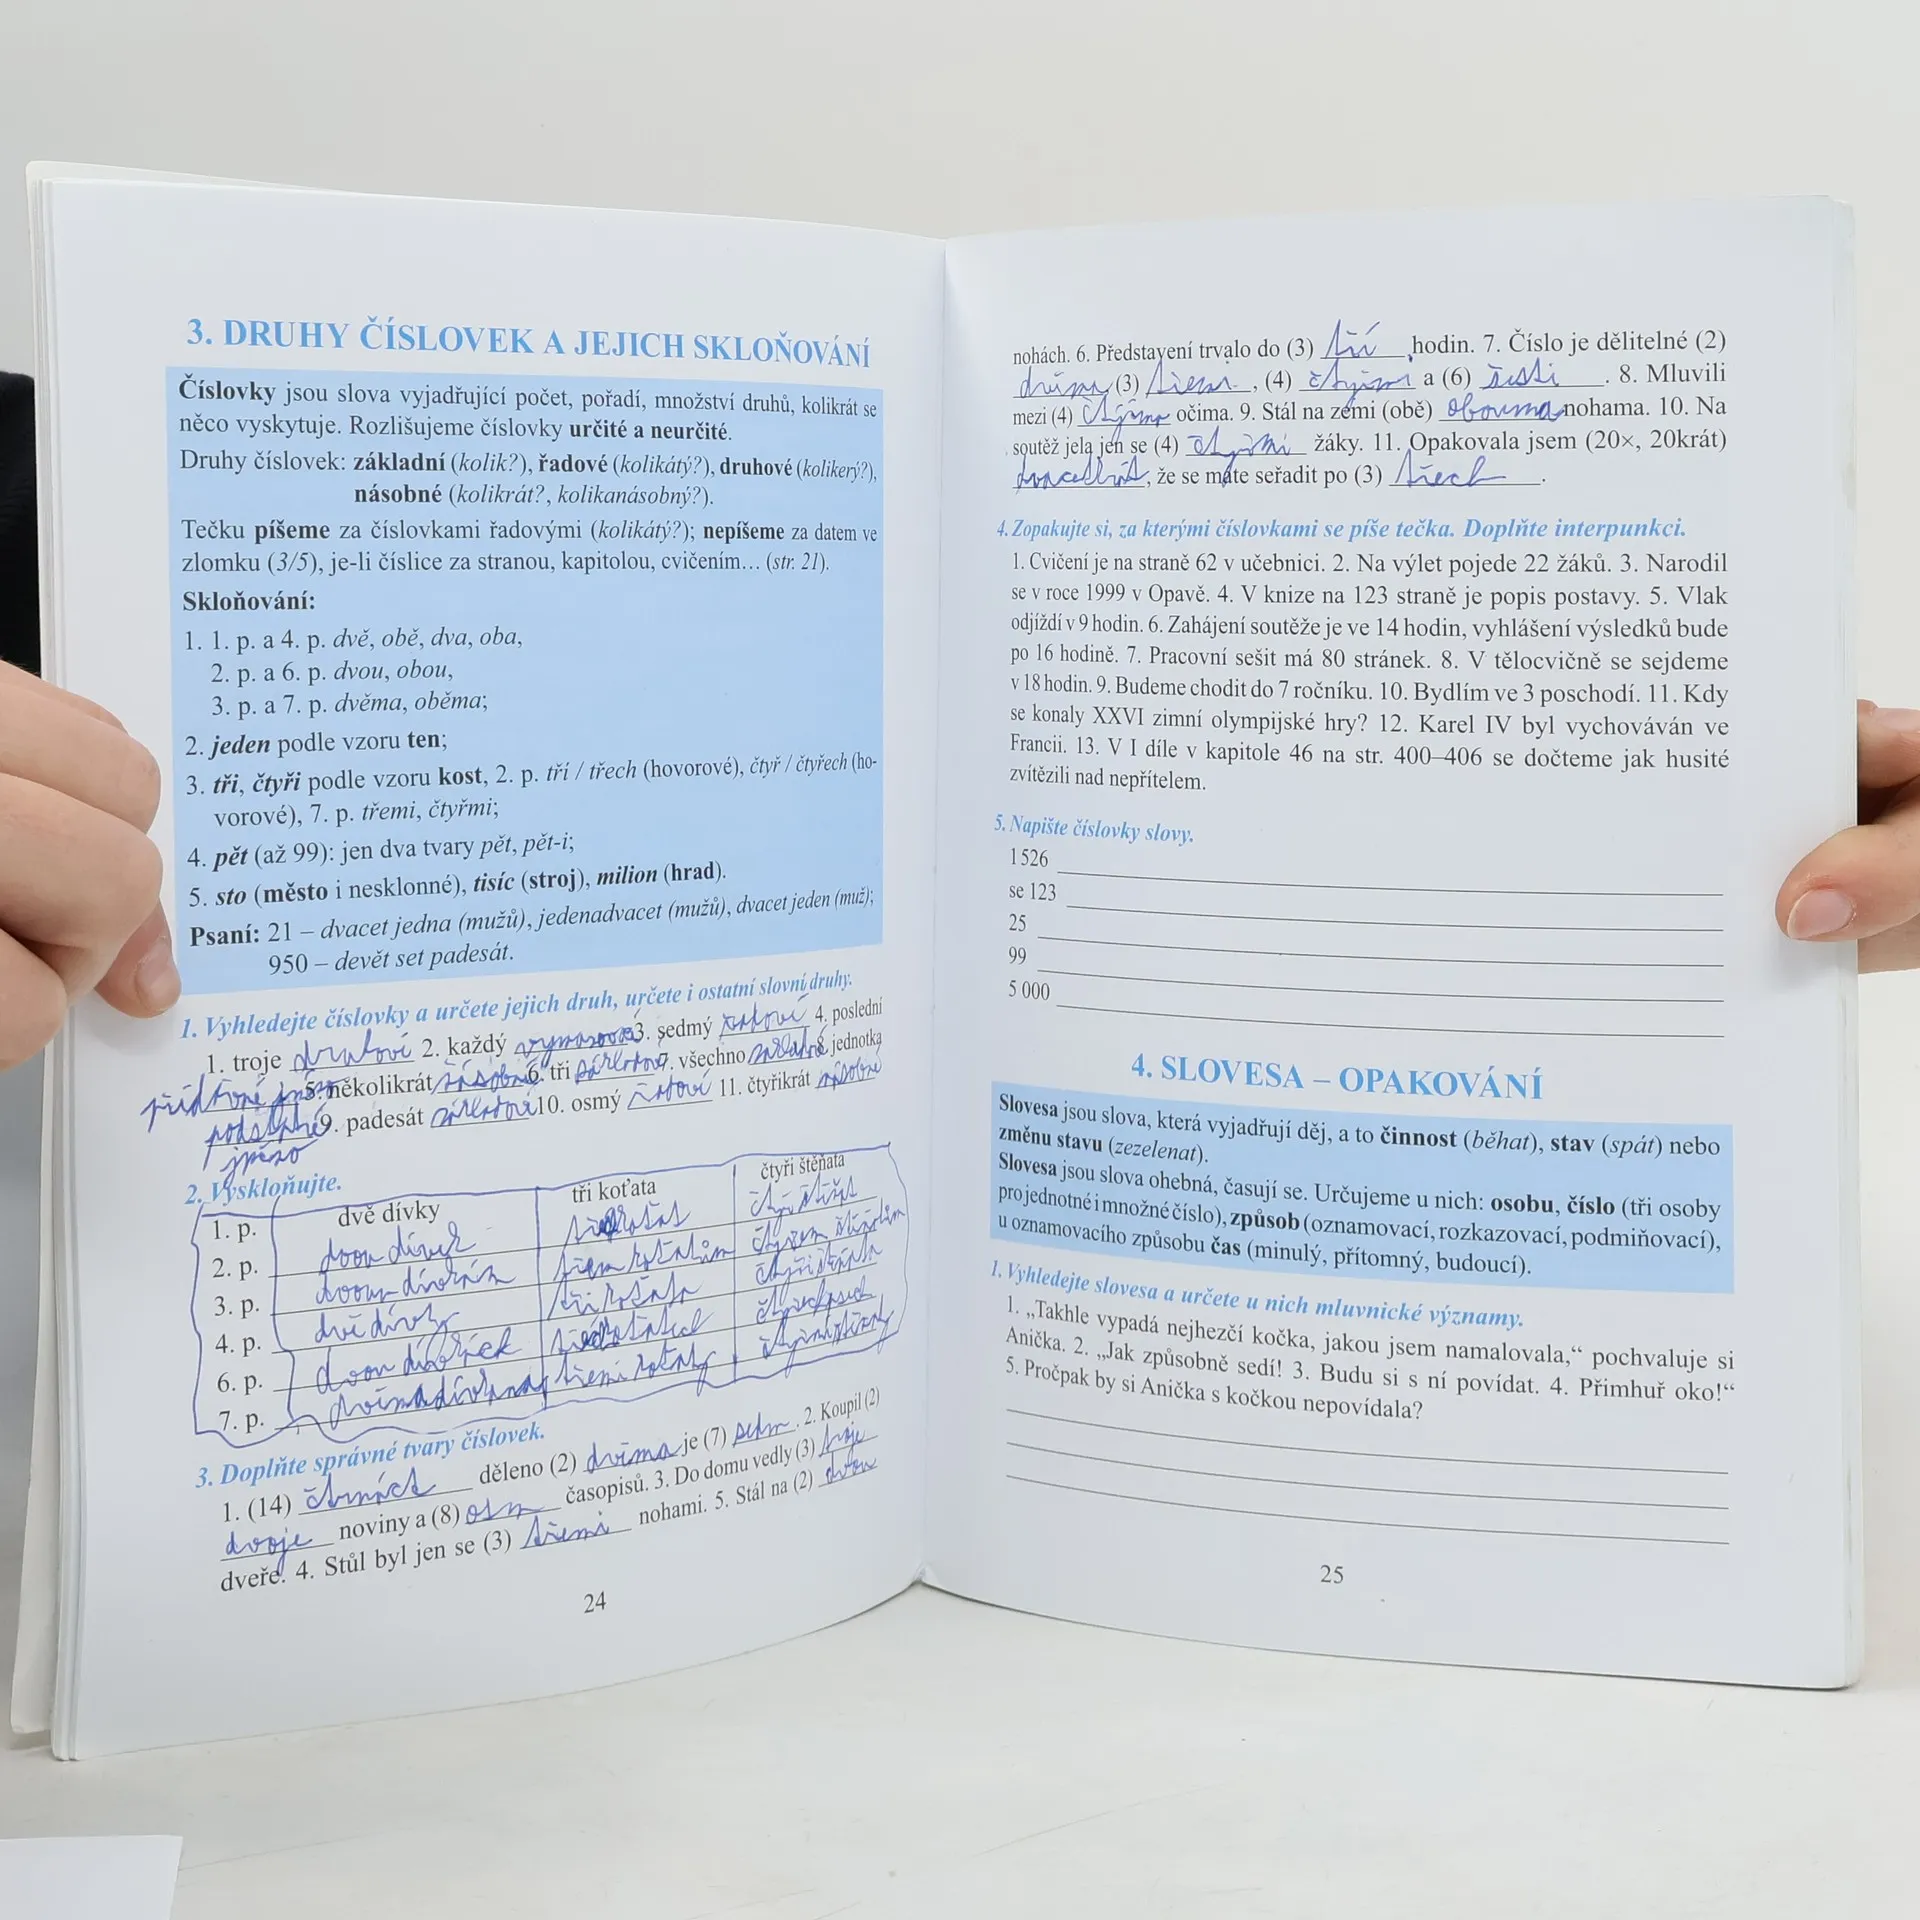 3. DRUHY ČÍSLOVEK A JEJICH SKLOŇOVÁNÍ
Číslovky jsou slova vyjadřující počet, pořadí, množství druhů, kolikrát se
něco vyskytuje. Rozlišujeme číslovky určité a neurčité.
Druhy číslovek: základní (kolik?), řadové (kolikátý?), druhové (kolikerý?),
násobné (kolikrát?, kolikanásobný?).
Tečku píšeme za číslovkami řadovými (kolikátý?); nepíšeme za datem ve
zlomku (3/5), je-li číslice za stranou, kapitolou, cvičením… (str. 21).
Skloňování:
1. 1. p. a 4. p. dvě, obě, dva, oba,
2. p. a 6. p. dvou, obou,
3. p. a 7. p. dvěma, oběma;
2. jeden podle vzoru ten;
3. tři, čtyři podle vzoru kost, 2. p. tří / třech (hovorové), čtyř / čtyřech (ho-
vorové), 7. p. třemi, čtyřmi;
4. pět (až 99): jen dva tvary pět, pět-i;
5. sto (město i nesklonné), tisíc (stroj), milion (hrad).
Psaní: 21 – dvacet jedna (mužů), jedenadvacet (mužů), dvacet jeden (muž);
950 – devět set padesát.
1. Vyhledejte číslovky a určete jejich druh, určete i ostatní slovní druhy.
1. troje druhové 2. každý 3. sedmý řadové 4. poslední
přídavné jméno 5. několikrát násobné 6. tři základové 7. všechno 8. jednotka
podstatné 9. padesát základové 10. osmý řadové 11. čtyřikrát násobné
jméno
2. Vyskloňujte.
1. p. dvě dívky tři koťata čtyři štěňata
2. p. dvou dívek koťat štěňat
3. p. dívkám třem koťatům čtyřem štěňatům
4. p. dvě dívky tři koťata čtyři štěňata
6. p. dvou dívkách koťatech
7. p. dvěma dívkama třemi koťaty
3. Doplňte správné tvary číslovek.
1. (14) čtrnáct děleno (2) dvěma je (7) sedm. 2. Koupil (2)
dvoje noviny a (8) osm časopisů. 3. Do domu vedly (3) troje
dveře. 4. Stůl byl jen se (3) třemi nohami. 5. Stál na (2) dvou
24
nohách. 6. Představení trvalo do (3) tří hodin. 7. Číslo je dělitelné (2)
dvěma, (3) třemi, (4) čtyřmi a (6) šesti. 8. Mluvili
mezi (4) čtyřma očima. 9. Stál na zemi (obě) obouma nohama. 10. Na
soutěž jela jen se (4) čtyřmi žáky. 11. Opakovala jsem (20×, 20krát)
dvacetkrát, že se máte seřadit po (3) třech.
4. Zopakujte si, za kterými číslovkami se píše tečka. Doplňte interpunkci.
1. Cvičení je na straně 62 v učebnici. 2. Na výlet pojede 22 žáků. 3. Narodil
se v roce 1999 v Opavě. 4. V knize na 123 straně je popis postavy. 5. Vlak
odjíždí v 9 hodin. 6. Zahájení soutěže je ve 14 hodin, vyhlášení výsledků bude
po 16 hodině. 7. Pracovní sešit má 80 stránek. 8. V tělocvičně se sejdeme
v 18 hodin. 9. Budeme chodit do 7 ročníku. 10. Bydlím ve 3 poschodí. 11. Kdy
se konaly XXVI zimní olympijské hry? 12. Karel IV byl vychováván ve
Francii. 13. V I díle v kapitole 46 na str. 400–406 se dočteme jak husité
zvítězili nad nepřítelem.
5. Napište číslovky slovy.
1 526
se 123
25
99
5 000
4. SLOVESA – OPAKOVÁNÍ
Slovesa jsou slova, která vyjadřují děj, a to činnost (běhat), stav (spát) nebo
změnu stavu (zezelenat).
Slovesa jsou slova ohebná, časují se. Určujeme u nich: osobu, číslo (tři osoby
pro jednotné i množné číslo), způsob (oznamovací, rozkazovací, podmiňovací),
u oznamovacího způsobu čas (minulý, přítomný, budoucí).
1. Vyhledejte slovesa a určete u nich mluvnické významy.
1. „Takhle vypadá nejhezčí kočka, jakou jsem namalovala,“ pochvaluje si
Anička. 2. „Jak způsobně sedí! 3. Budu si s ní povídat. 4. Přimhuř oko!“
5. Pročpak by si Anička s kočkou nepovídala?
25